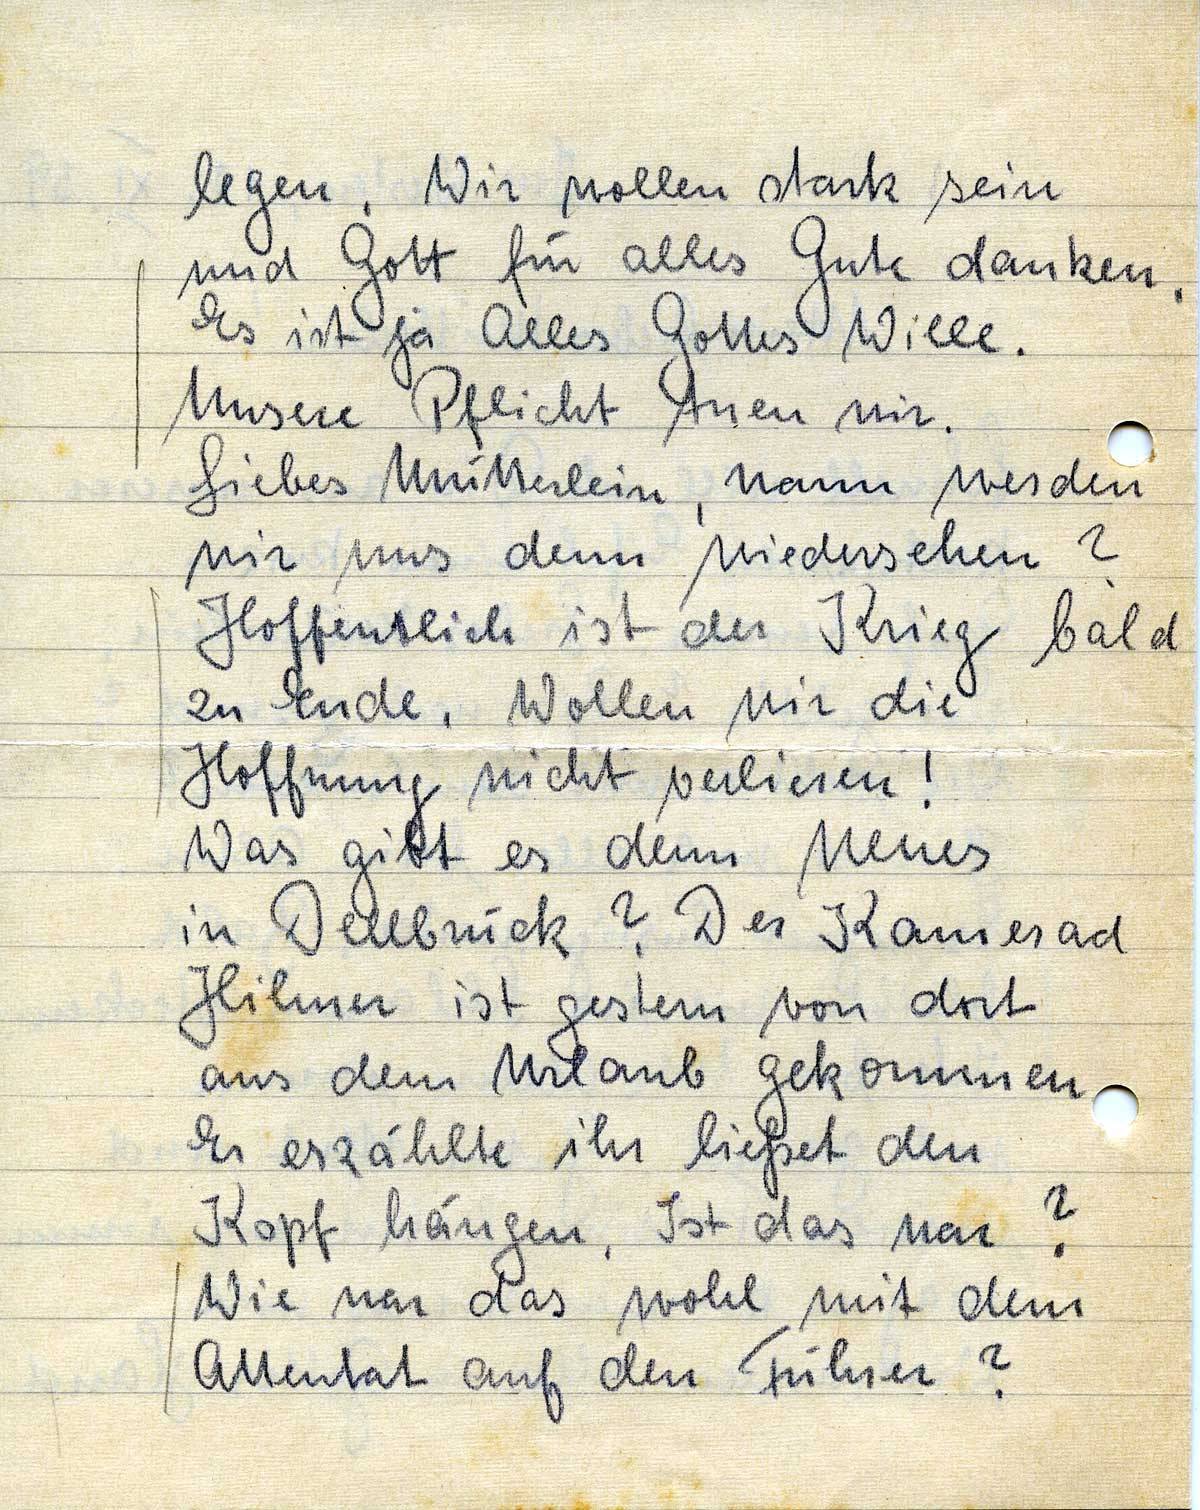 legen. Wir wollen stark sein
und Gott für alles Gute danken.
Es ist ja Alles Gottes Wille.
Unsere Pflicht tuen wir.
Liebes Mütterlein, wann werden
wir uns denn wiedersehen?
Hoffentlich ist der Krieg bald
zu Ende. Wollen wir die
Hoffnung nicht verlieren!
Was gibt es denn Neues
in Dellbrück? Der Kamerad
Hilmer ist gestern von dort
aus dem Urlaub gekommen
Er erzählte ihr ließet den
Kopf hängen. Ist das war?
Wie war das wohl mit dem
Attentat auf den Führer?